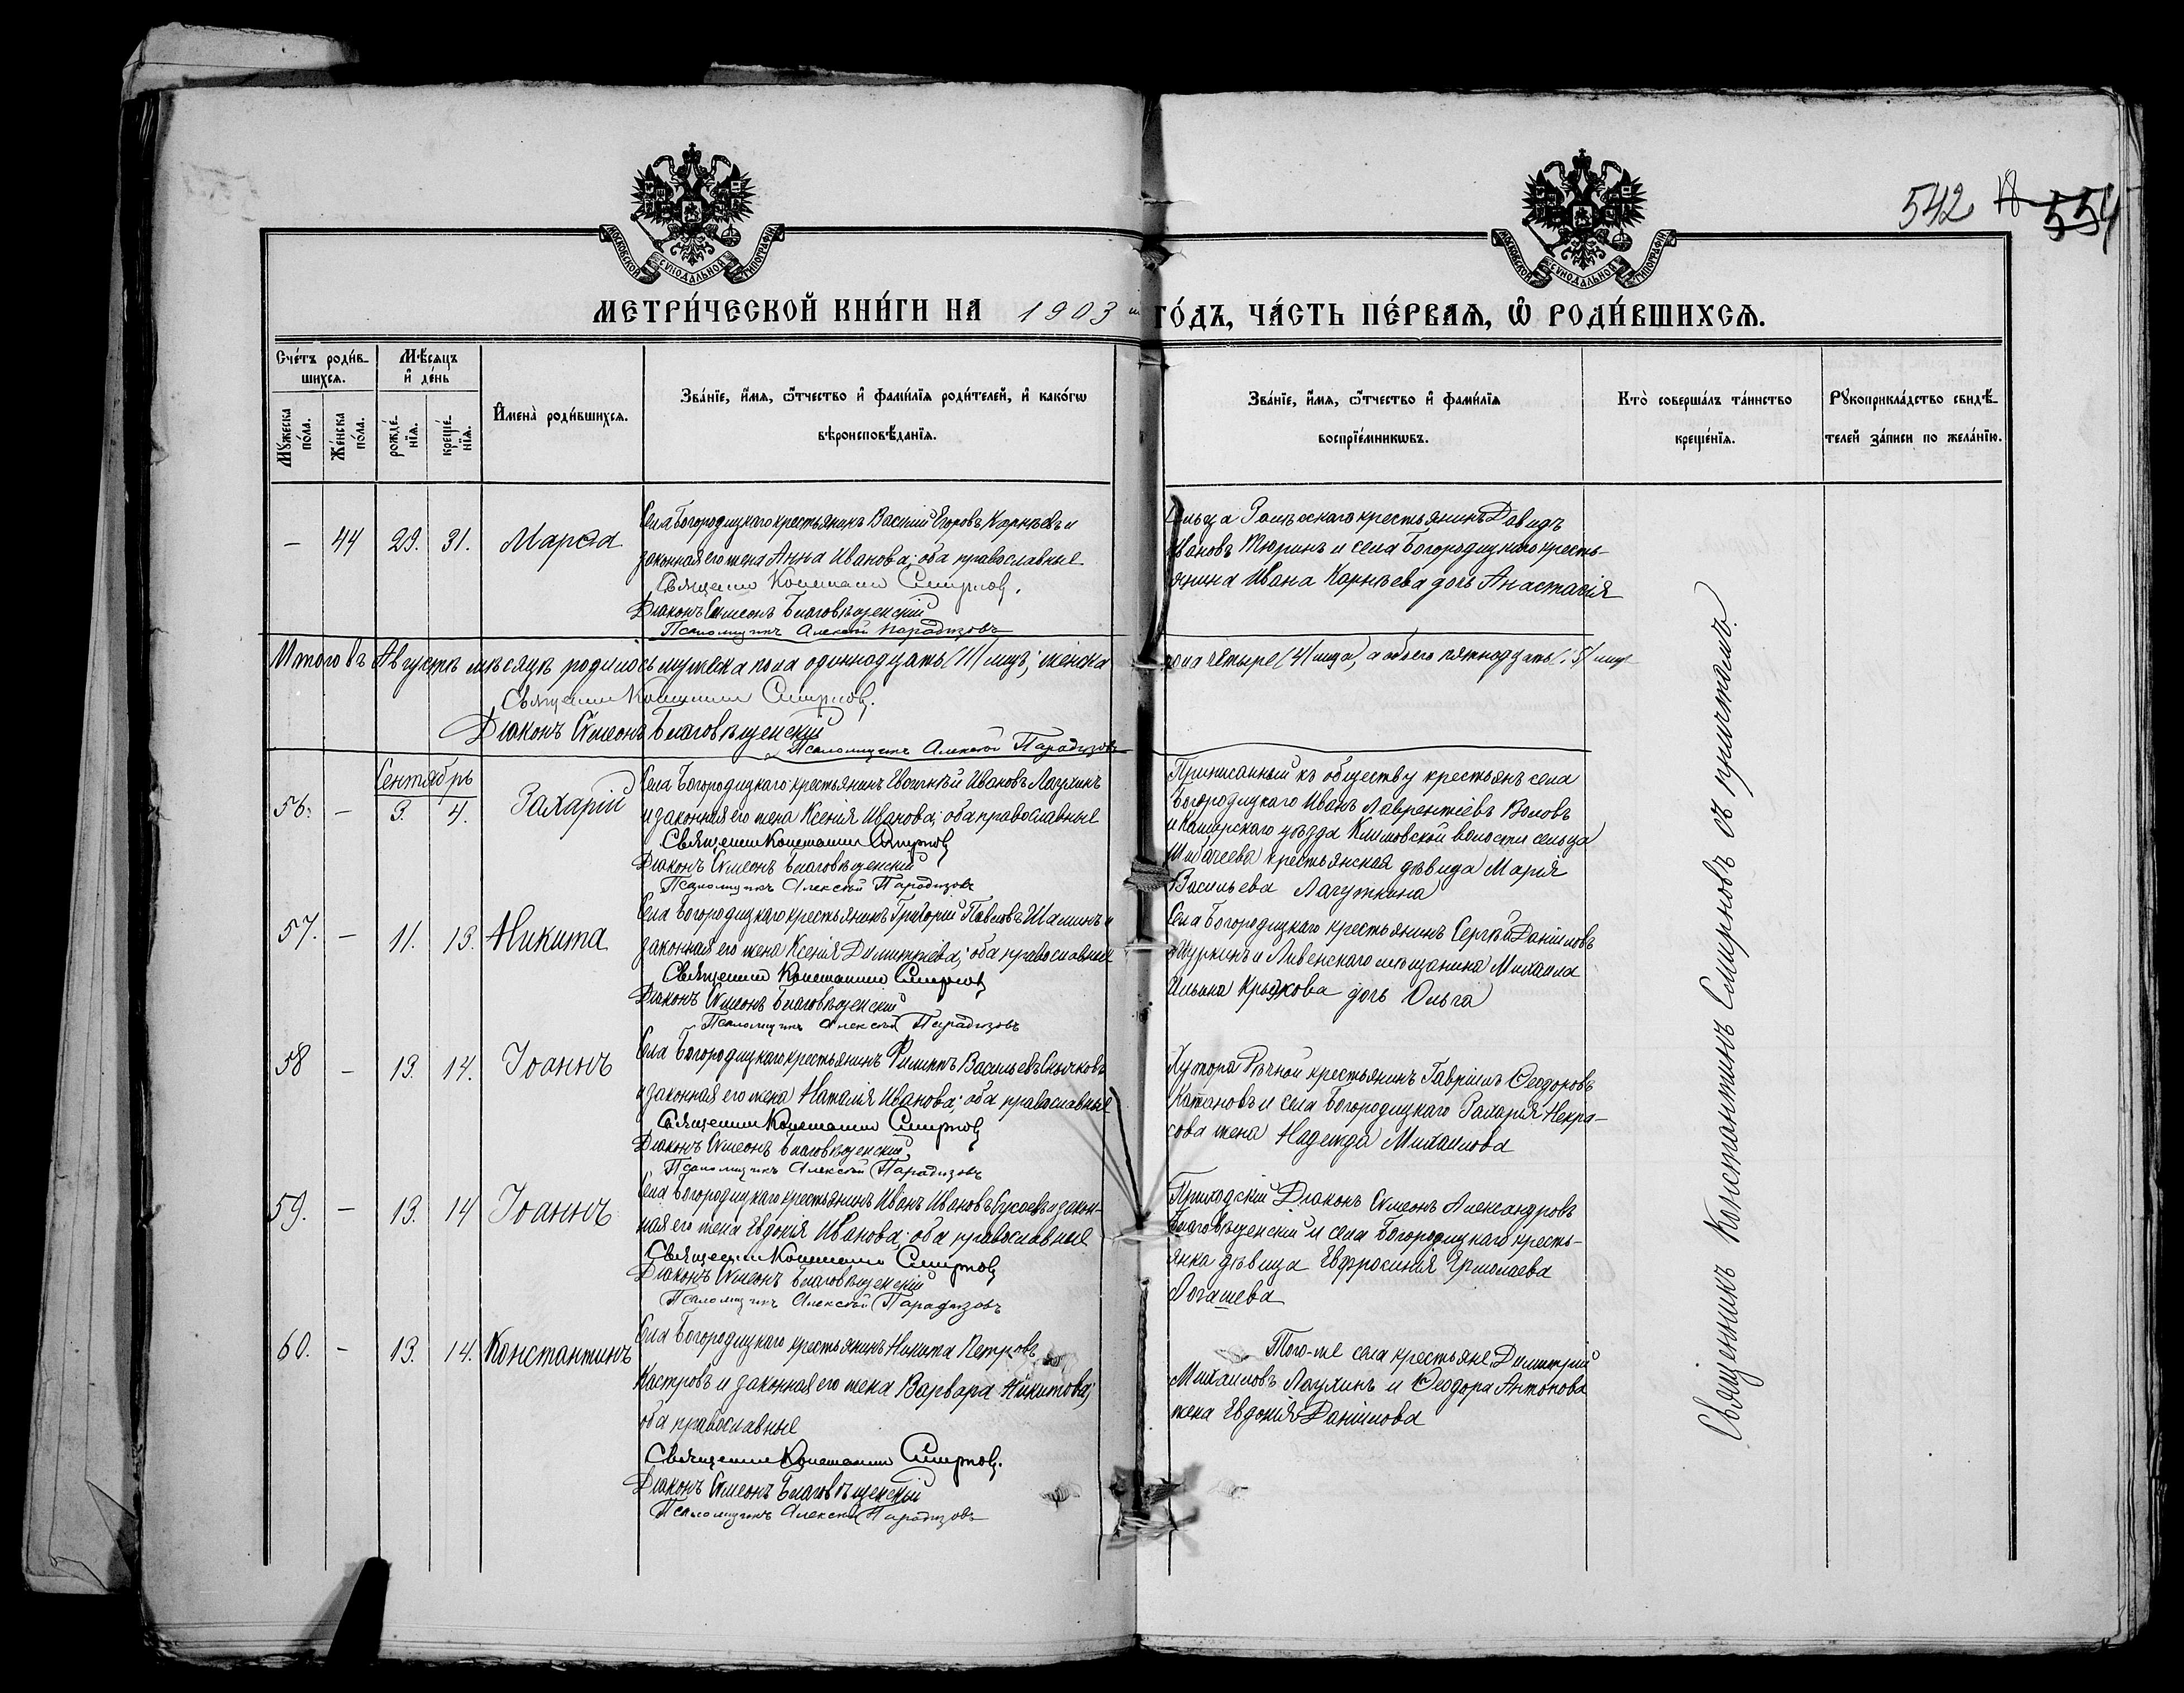 542
554
МОСКОВСКОЙ СУНОДАЛЬНОЙ ТИПОГРАФІИ
МОСКОВСКОЙ СУНОДАЛЬНОЙ ТИПОГРАФІИ
МЕТРИ́ЧЕСКОЙ КНИ́ГИ НА 1903 ГО́ДЪ, ЧА́СТЬ ПЕ́РВАѦ, Ѡ҆ РОДИ́ВШИХСѦ.
Сче́тъ роди́в-
шихсѧ.
Мѣ́сѧцъ
и҆ де́нь
Мꙋ́жеска
по́ла.
Же́нска
по́ла.
рожде́-
нїѧ.
креще́-
нїѧ.
И҆мена̀ роди́вшихсѧ.
Зва́нїе, и҆́мѧ, ѻ҆́тчество и҆ фами́лїѧ роди́телей, и҆ како́гѡ
вѣроисповѣ́данїѧ.
Зва́нїе, и҆́мѧ, ѻ҆́тчество и҆ фами́лїѧ
воспрїе́мникѡвъ.
Кто̀ соверша́лъ та́инство
креще́нїѧ.
Рꙋкоприкла́дство свидѣ́-
телей за́писи по жела́нїю.
— 44 29. 31. Марѳа
Села Богородицкаго крестьянинъ Василий Егоровъ Корнѣевъ и
законная его жена Анна Иванова; оба православные
Священникъ Константинъ Смирновъ.
Діаконъ Симеонъ Благовѣщенскій
Псаломщикъ Алексѣй Парадизовъ
крестьянинъ Давидъ
Ивановъ Тюринъ и села Богородицкаго кресть-
янина Ивана Корнѣева дочь Анастасія
Итого въ Августѣ мѣсяцѣ родилось мужска пола одиннадцать (11) лицъ; женска
пола четыре (4) лица, а обоего пятнадцать (15) лицъ
Священникъ Константинъ Смирновъ.
Діаконъ Симеонъ Благовѣщенскій
Псаломщикъ Алексѣй Парадизовъ
Сентябрь
56. — 3. 4. Захарій
Села Богородицкаго крестьянинъ Евсигнѣй Ивановъ Лаухинъ
и законная его жена Ксенія Иванова; оба православные
Священникъ Константинъ Смирновъ
Діаконъ Симеонъ Благовѣщенскій
Псаломщикъ Алексѣй Парадизовъ
Приписанный къ обществу крестьянъ села
Богородицкаго Иванъ Лаврентіевъ Воловъ
и Каширскаго уѣзда Климовской волости сельца
крестьянская дѣвица Марія
Васильева Лагуткина
57. — 11. 13. Никита
Села Богородицкаго крестьянинъ Григорій Павловъ Шашинъ и
законная его жена Ксенія Димитріева; оба православные
Священникъ Константинъ Смирновъ
Діаконъ Симеонъ Благовѣщенскій
Псаломщикъ Алексѣй Парадизовъ
Села Богородицкаго крестьянинъ Сергѣй Даніиловъ
и Ливенскаго мѣщанина Михаила
Ильина дочь Ольга
58 — 13. 14. Іоаннъ
Села Богородицкаго крестьянинъ Филиппъ Васильевъ
и законная его жена Наталія Иванова; оба православные
Священникъ Константинъ Смирновъ
Діаконъ Симеонъ Благовѣщенскій
Псаломщикъ Алексѣй Парадизовъ
Хутора Рѣчной крестьянинъ Гавріилъ Ѳеодоровъ
Катановъ и села Богородицкаго Захарія Некра-
сова жена Надежда Михаилова
59. — 13. 14 Іоаннъ
Села Богородицкаго крестьянинъ Иванъ Ивановъ Гусаевъ и закон-
ная его жена Евдокія Иванова; оба православные
Священникъ Константинъ Смирновъ
Діаконъ Симеонъ Благовѣщенскій
Псаломщикъ Алексѣй Парадизовъ
Приходскій Діаконъ Симеонъ Александровъ
Благовѣщенскій и села Богородицкаго кресть-
янка дѣвица Евфросинія Ермолаева
Логашева
60. — 13. 14. Константинъ
Села Богородицкаго крестьянинъ Никита Петровъ
Костровъ и законная его жена Варвара Никитова;
оба православные
Священникъ Константинъ Смирновъ.
Діаконъ Симеонъ Благовѣщенскій
Псаломщикъ Алексѣй Парадизовъ
Того-же села крестьяне Димитрій
Михаиловъ Лаухинъ и Ѳеодора Антонова
жена Евдокія Даніилова
Священникъ Константинъ Смирновъ съ причтомъ.